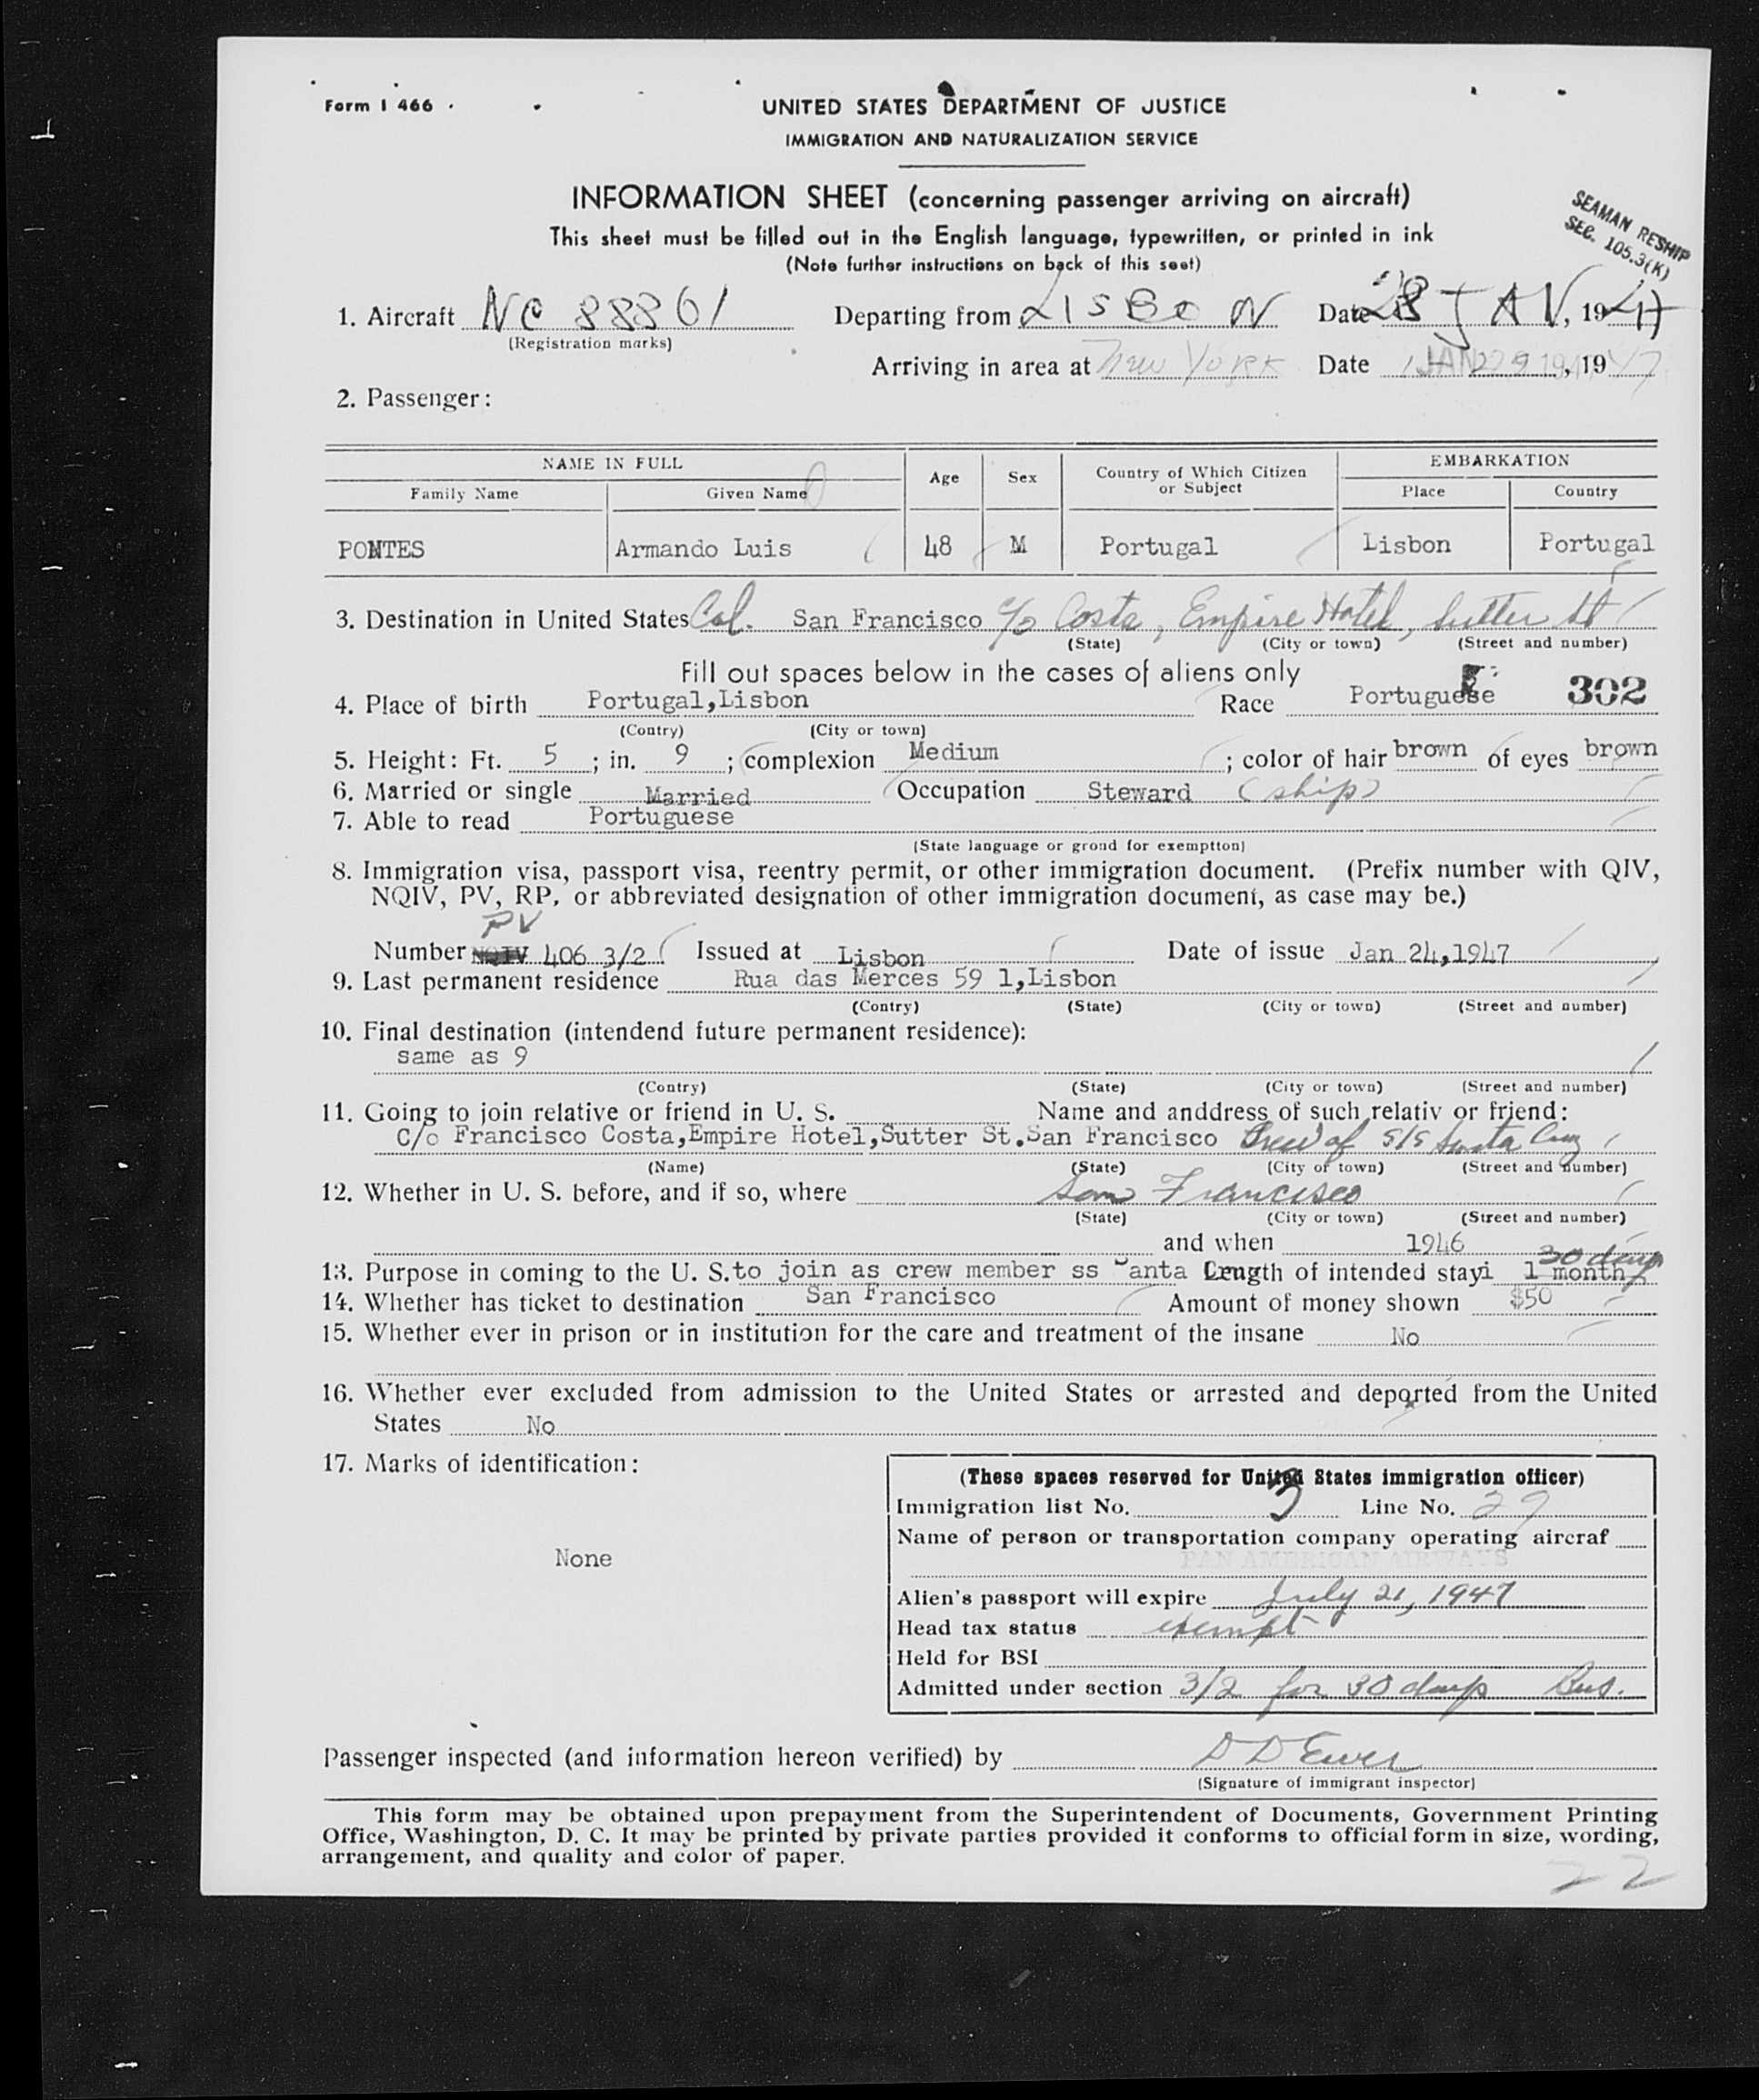 Form I 466
UNITED STATES DEPARTMENT OF JUSTICE
IMMIGRATION AND NATURALIZATION SERVICE
INFORMATION SHEET (concerning passenger arriving on aircraft)
This sheet must be filled out in the English language, typewritten, or printed in ink
(Note further instructions on back of this seet)
SEAMAN RESHIP
SEC. 105.3(K)
1. Aircraft NC 88861 Departing from LISBON Date 28 JAN, 1947
(Registration marks)
Arriving in area at New York Date JAN 29, 1947
2. Passenger:
NAME IN FULL Age Sex Country of Which Citizen or Subject EMBARKATION
Family Name Given Name Place Country
PONTES Armando Luis 48 M Portugal Lisbon Portugal
3. Destination in United States Cal. San Francisco c/o Costa, Empire Hotel, Sutter St
(State) (City or town) (Street and number)
Fill out spaces below in the cases of aliens only
4. Place of birth Portugal,Lisbon Race Portuguese 302
(Contry) (City or town)
5. Height: Ft. 5 ; in. 9 ; complexion Medium ; color of hair brown of eyes brown
6. Married or single Married Occupation Steward (ship)
7. Able to read Portuguese
(State language or grond for exemptton)
8. Immigration visa, passport visa, reentry permit, or other immigration document. (Prefix number with QIV,
NQIV, PV, RP, or abbreviated designation of other immigration document, as case may be.)
PV
Number NQIV 406 3/2 Issued at Lisbon Date of issue Jan 24,1947
9. Last permanent residence Rua das Merces 59 1,Lisbon
(Contry) (State) (City or town) (Street and number)
10. Final destination (intendend future permanent residence):
same as 9
(Contry) (State) (City or town) (Street and number)
11. Going to join relative or friend in U. S. Name and anddress of such relativ or friend:
C/o Francisco Costa,Empire Hotel,Sutter St.San Francisco Crew of S/S Santa Cruz
(Name) (State) (City or town) (Street and number)
12. Whether in U. S. before, and if so, where San Francisco
(State) (City or town) (Street and number)
and when 1946
30 days
13. Purpose in coming to the U. S. to join as crew member ss Santa Length of intended stayi 1 month
14. Whether has ticket to destination San Francisco Amount of money shown $50
15. Whether ever in prison or in institution for the care and treatment of the insane No
16. Whether ever excluded from admission to the United States or arrested and deported from the United
States No
17. Marks of identification:
None
(These spaces reserved for United States immigration officer)
Immigration list No. 3 Line No. 29
Name of person or transportation company operating aircraf
PAN AMERICAN AIRWAYS
Alien's passport will expire July 21, 1947
Head tax status exempt
Held for BSI
Admitted under section 3/2 for 30 days Bus.
Passenger inspected (and information hereon verified) by D D Ewer
(Signature of immigrant inspector)
This form may be obtained upon prepayment from the Superintendent of Documents, Government Printing
Office, Washington, D. C. It may be printed by private parties provided it conforms to official form in size, wording,
arrangement, and quality and color of paper.
22